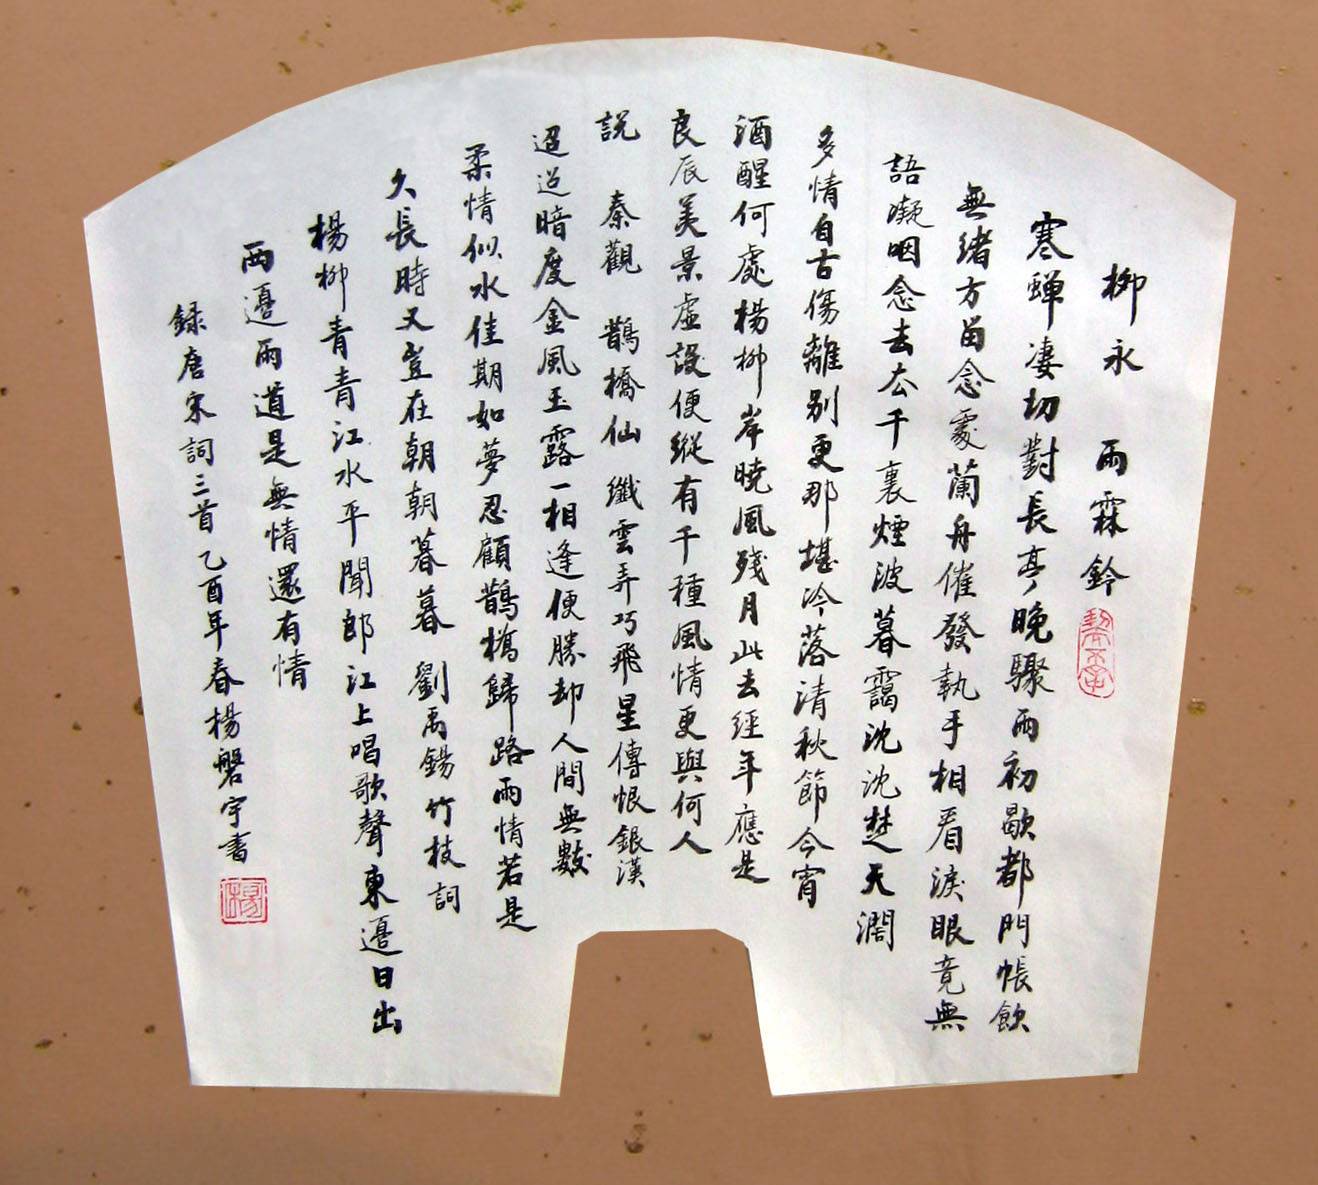 柳永 雨霖鈴
寒蟬凄切對長亭晚驟雨初歇都門帳飲
無緒方留念處蘭舟催發執手相看淚眼竟無
語凝咽念去厺千裏煙波暮靄沈沈楚天濶
多情自古傷離别更那堪冷落清秋節今宵
酒醒何處楊柳岸曉風殘月此去經年應是
良辰美景虛設便縱有千種風情更與何人
説 秦觀 鵲橋仙 纖雲弄巧飛星傳恨銀漢
迢迢暗度金風玉露一相逢便勝却人間無數
柔情似水佳期如夢忍顧鵲橋歸路兩情若是
久長時又豈在朝朝暮暮 劉禹錫 竹枝詞
楊柳青青江水平聞郎江上唱歌聲東邊日出
西邊雨道是無情還有情
録唐宋詞三首乙酉年春楊磐宇書